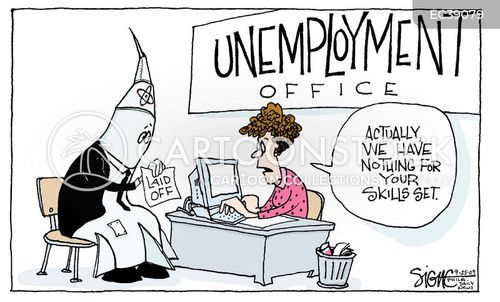 EC39079
UNEMPLOYMENT
OFFICE
LAID
OFF
ACTUALLY,
WE HAVE
NOTHING FOR
YOUR
SKILLS SET.
CARTOONSTOCK
CARTOONCOLLECTIONS
SIGNE
PHILA.
DAILY
NEWS
9-25-09